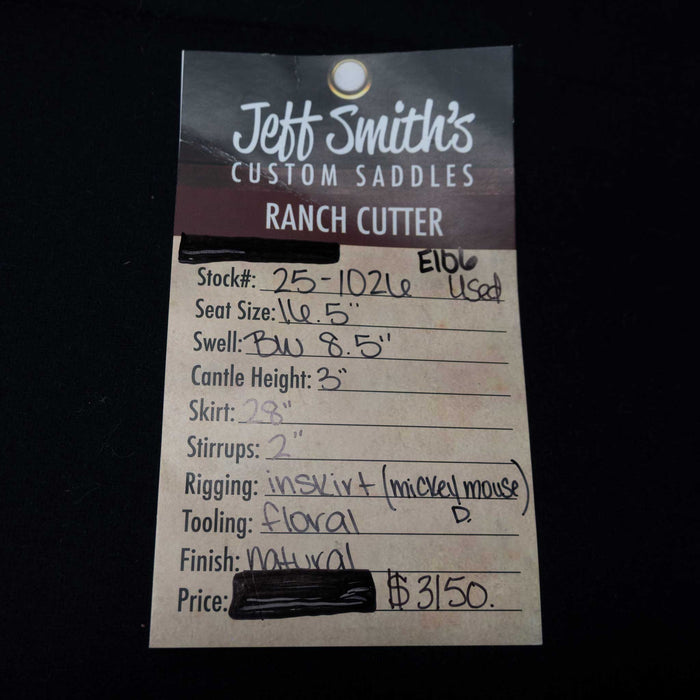 Jeff Smith's
CUSTOM SADDLES
RANCH CUTTER
E106
Stock#: 25-1026 Used
Seat Size: 16.5"
Swell: BW 8.5"
Cantle Height: 3"
Skirt: 28"
Stirrups: 2"
Rigging: inskirt (mickey mouse)
D.
Tooling: floral
Finish: natural
Price: $3150.